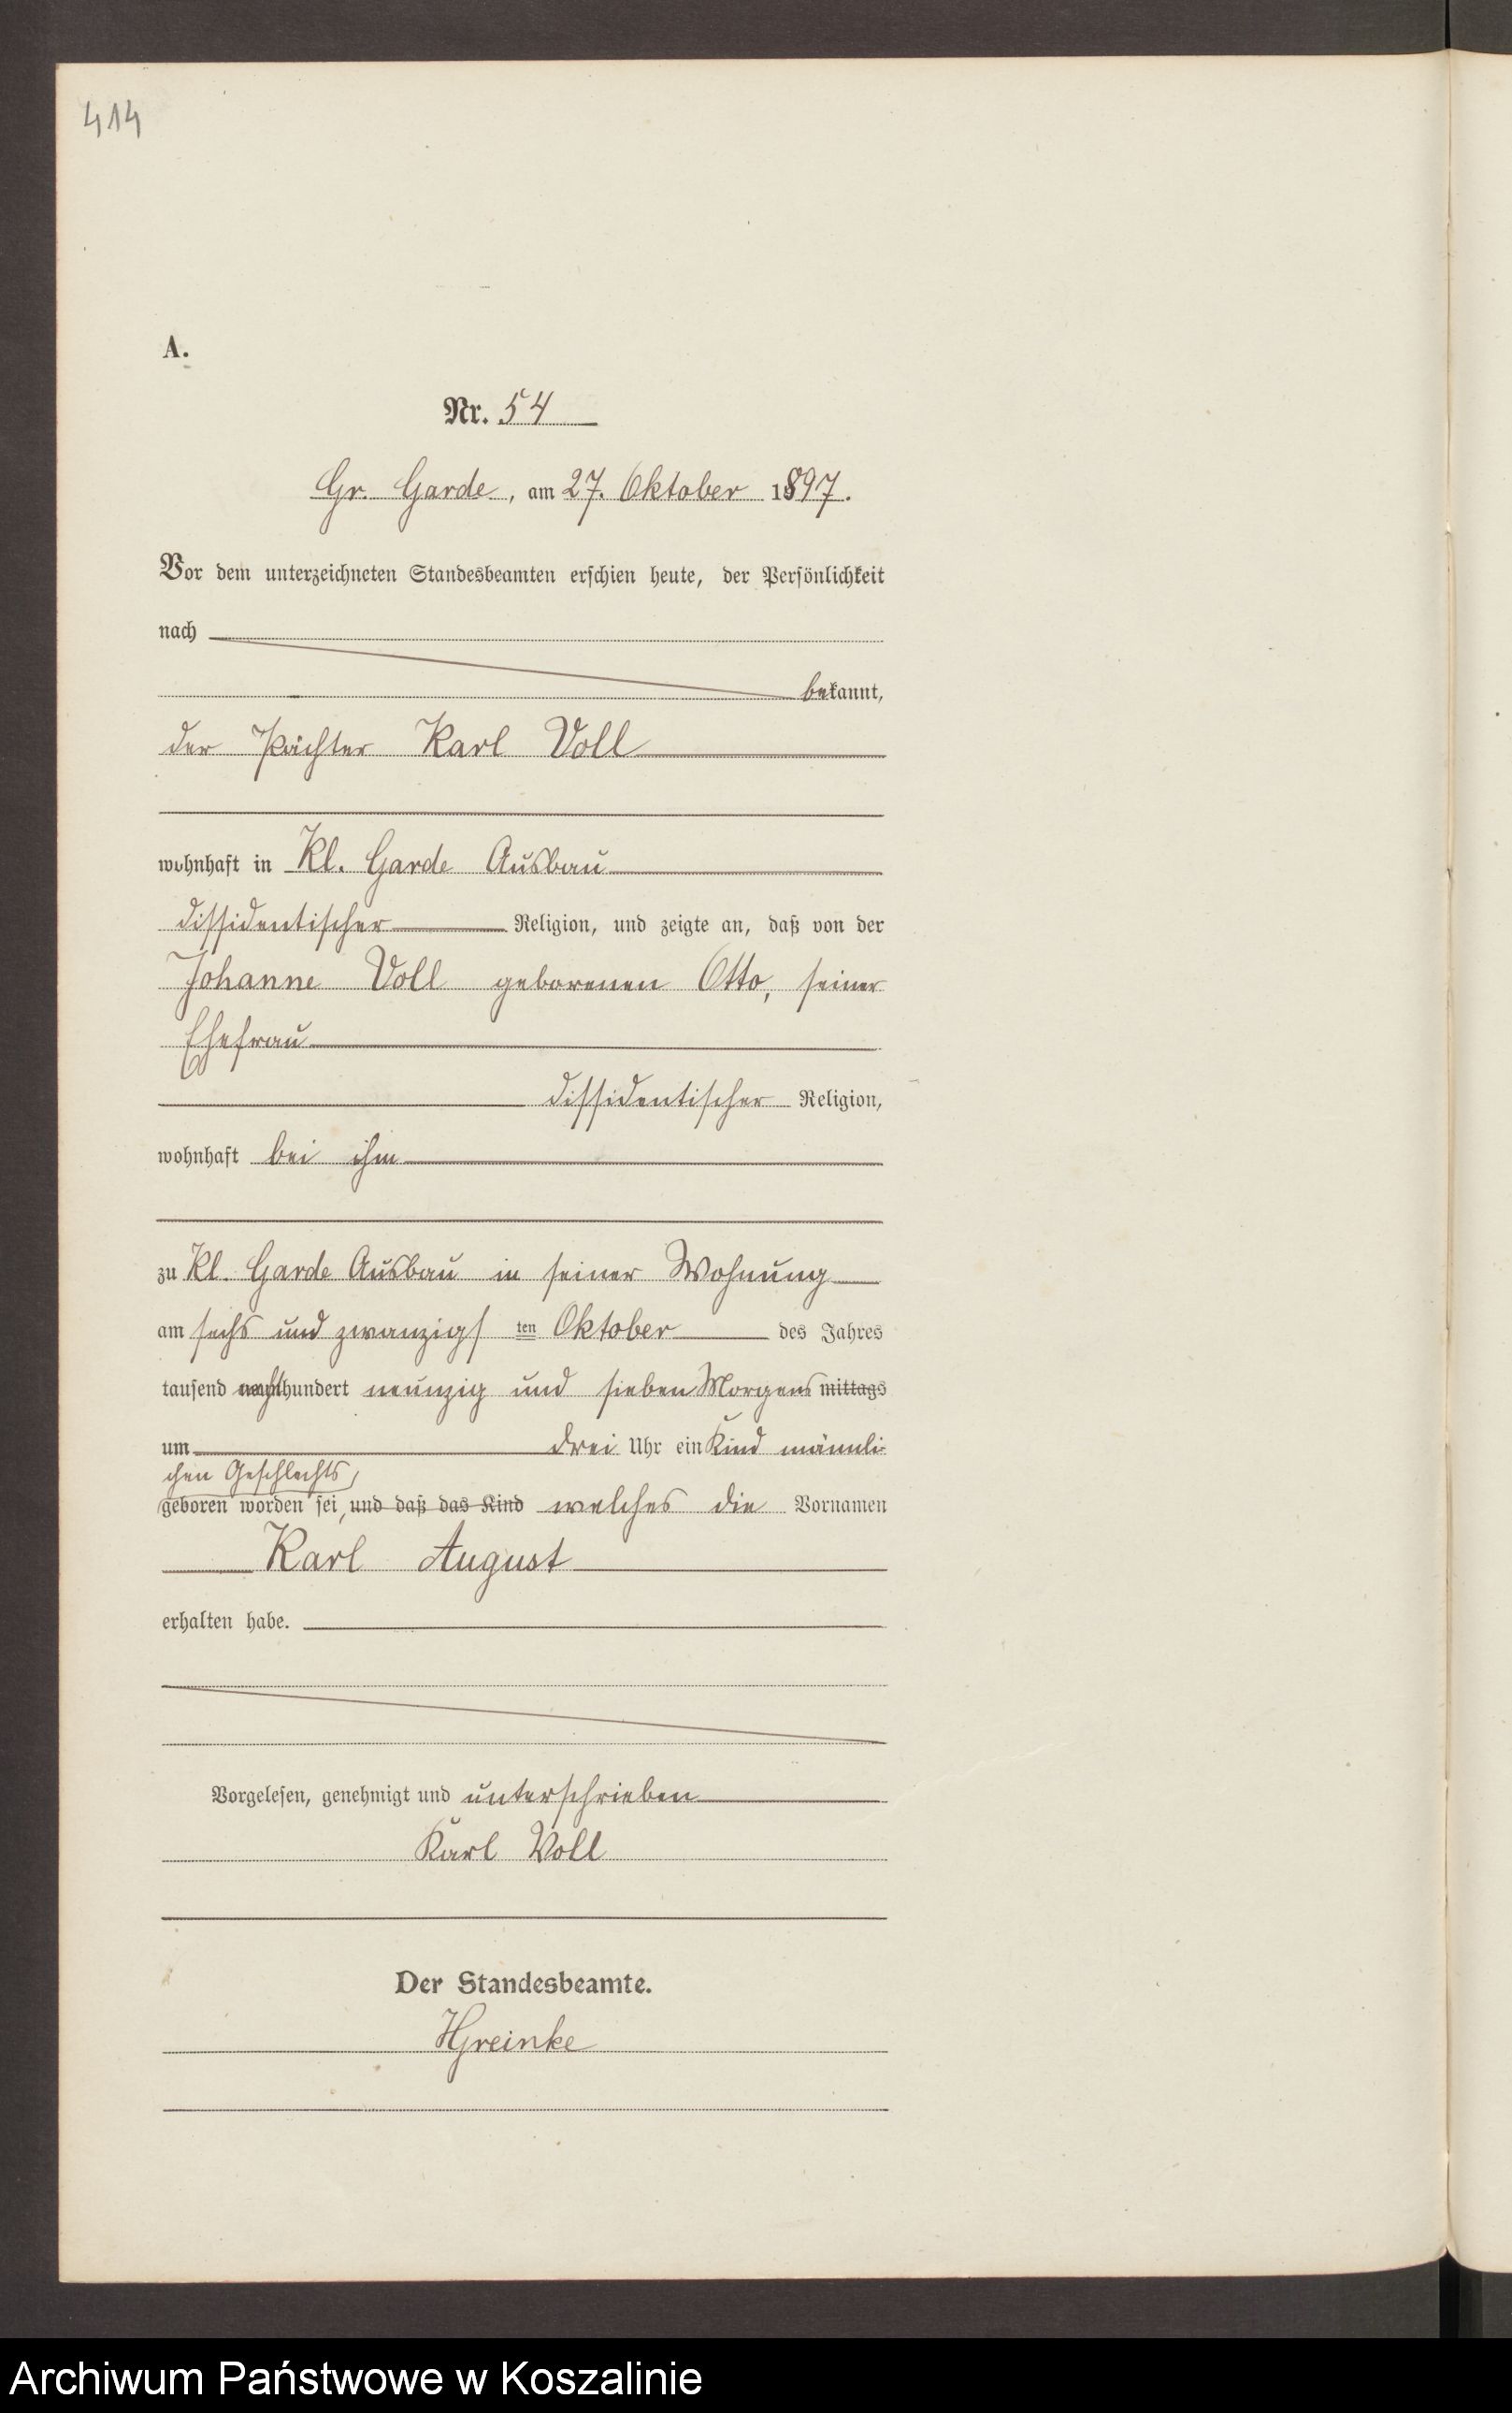 414
A.
Nr. 54
Gr. Garde, am 27. Oktober 1897.
Vor dem unterzeichneten Standesbeamten erschien heute, der Persönlichkeit
nach
bekannt,
der Pächter Karl Voll
wohnhaft in Kl. Garde Ausbau
dissidentischer Religion, und zeigte an, daß von der
Johanne Voll geborenen Otto, seiner
Ehefrau
dissidentischer Religion,
wohnhaft bei ihm
zu Kl. Garde Ausbau in seiner Wohnung
am sechs und zwanzigsten Oktober des Jahres
tausend achthundert neunzig und sieben Morgens mittags
um drei Uhr ein Kind männli-
chen Geschlechts
geboren worden sei, und daß das Kind welches die Vornamen
Karl August
erhalten habe.
Vorgelesen, genehmigt und unterschrieben
Karl Voll
Der Standesbeamte.
Archiwum Państwowe w Koszalinie